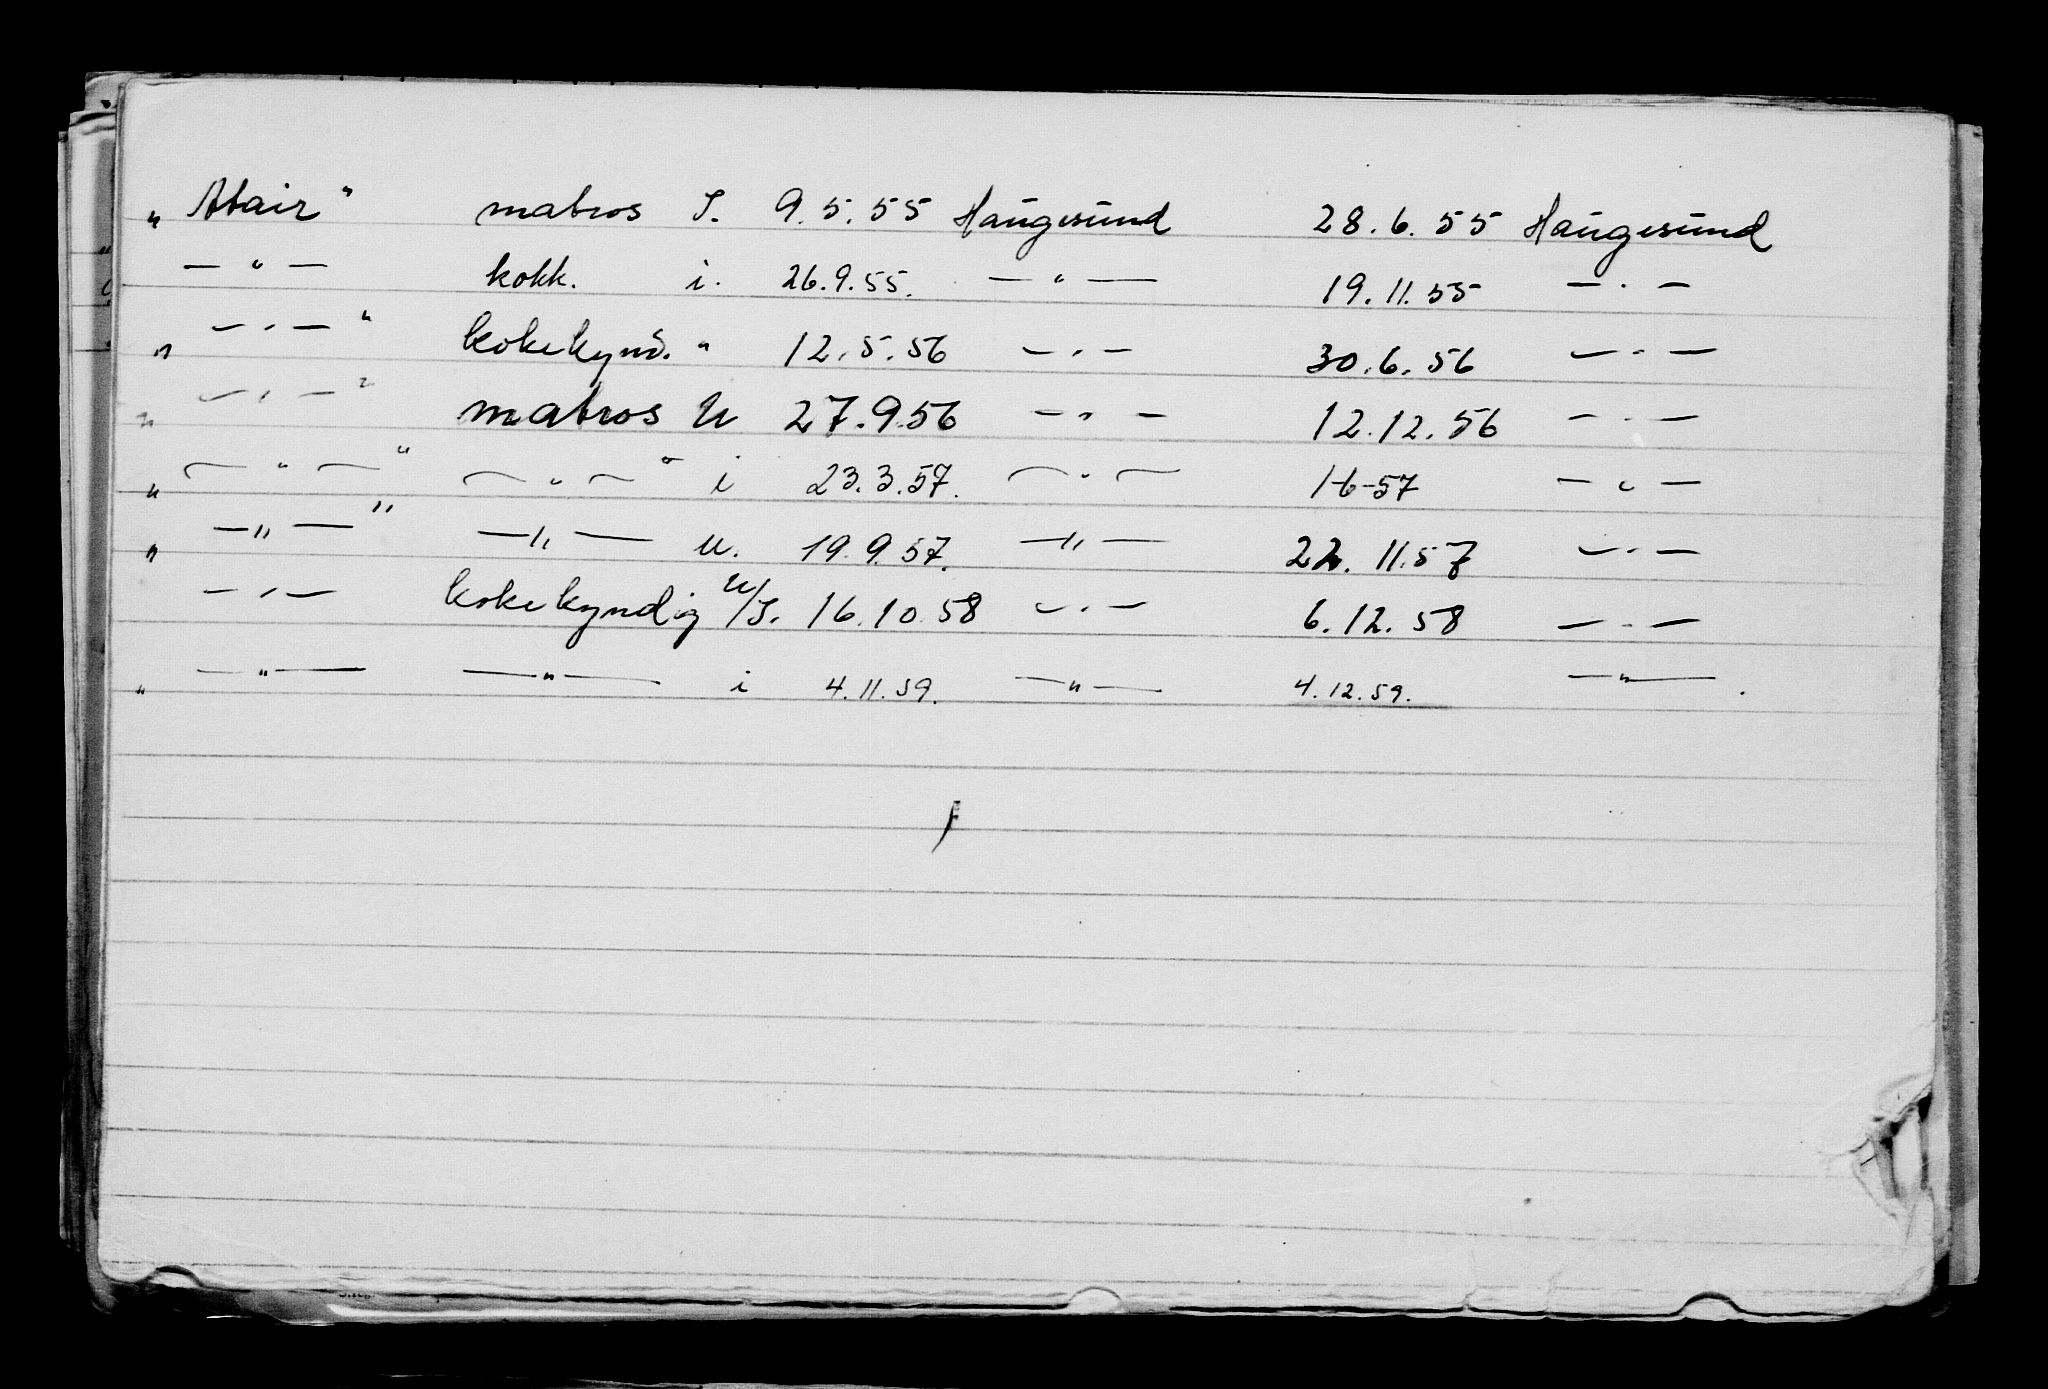 „ Atair " matros I. 9.5.55 Haugesund 28.6.55 Haugesund
— " — kokk. i. 26.9.55. — " — 19.11.55 — " —
„ — " — " kokekynd. " 12.5.56 — " — 30.6.56 — " —
„ — " — " matros U 27.9.56 — " — 12.12.56 — " —
„ — " — " — " — " i 23.3.57. — " — 1-6-57 — " —
„ — " — " — " — U. 19.9.57. — " — 22.11.57 — " —
— " — kokekyndig U/I. 16.10.58 — " — 6.12.58 — " —
„ — " — — " — i 4.11.59. — " — 4.12.59. — " — .